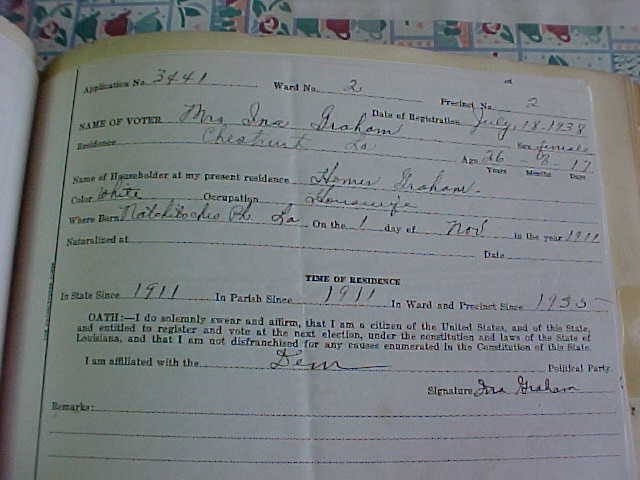 Application No. 3441 Ward No. 2 Precinct No. 2
NAME OF VOTER Mrs Ina Graham Date of Registration July 18-1938
Residence Chestnut La Sex female
Age 26 - 8 - 17
Years Months Days
Name of Householder at my present residence Homer Graham.
Color White Occupation Housewife
Where Born Natchitoches Ph. La On the 1 day of Nov in the year 1911
Naturalized at Date
TIME OF RESIDENCE
In State Since 1911 In Parish Since 1911 In Ward and Precinct Since 1935
OATH:—I do solemnly swear and affirm, that I am a citizen of the United States, and of this State,
and entitled to register and vote at the next election, under the constitution and laws of the State of
Louisiana, and that I am not disfranchised for any causes enumerated in the Constitution of this State.
I am affiliated with the Dem Political Party.
Signature Ina Graham
Remarks: